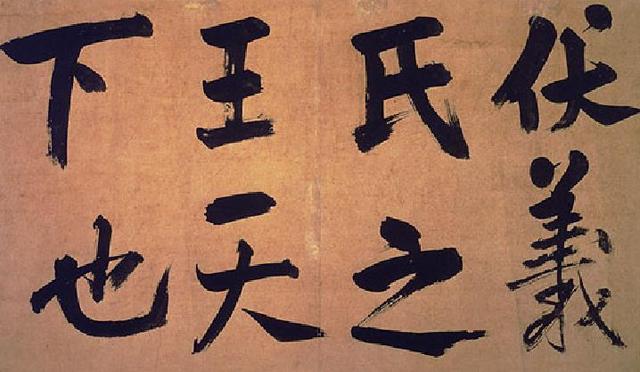 伏義
氏之
王天
下也